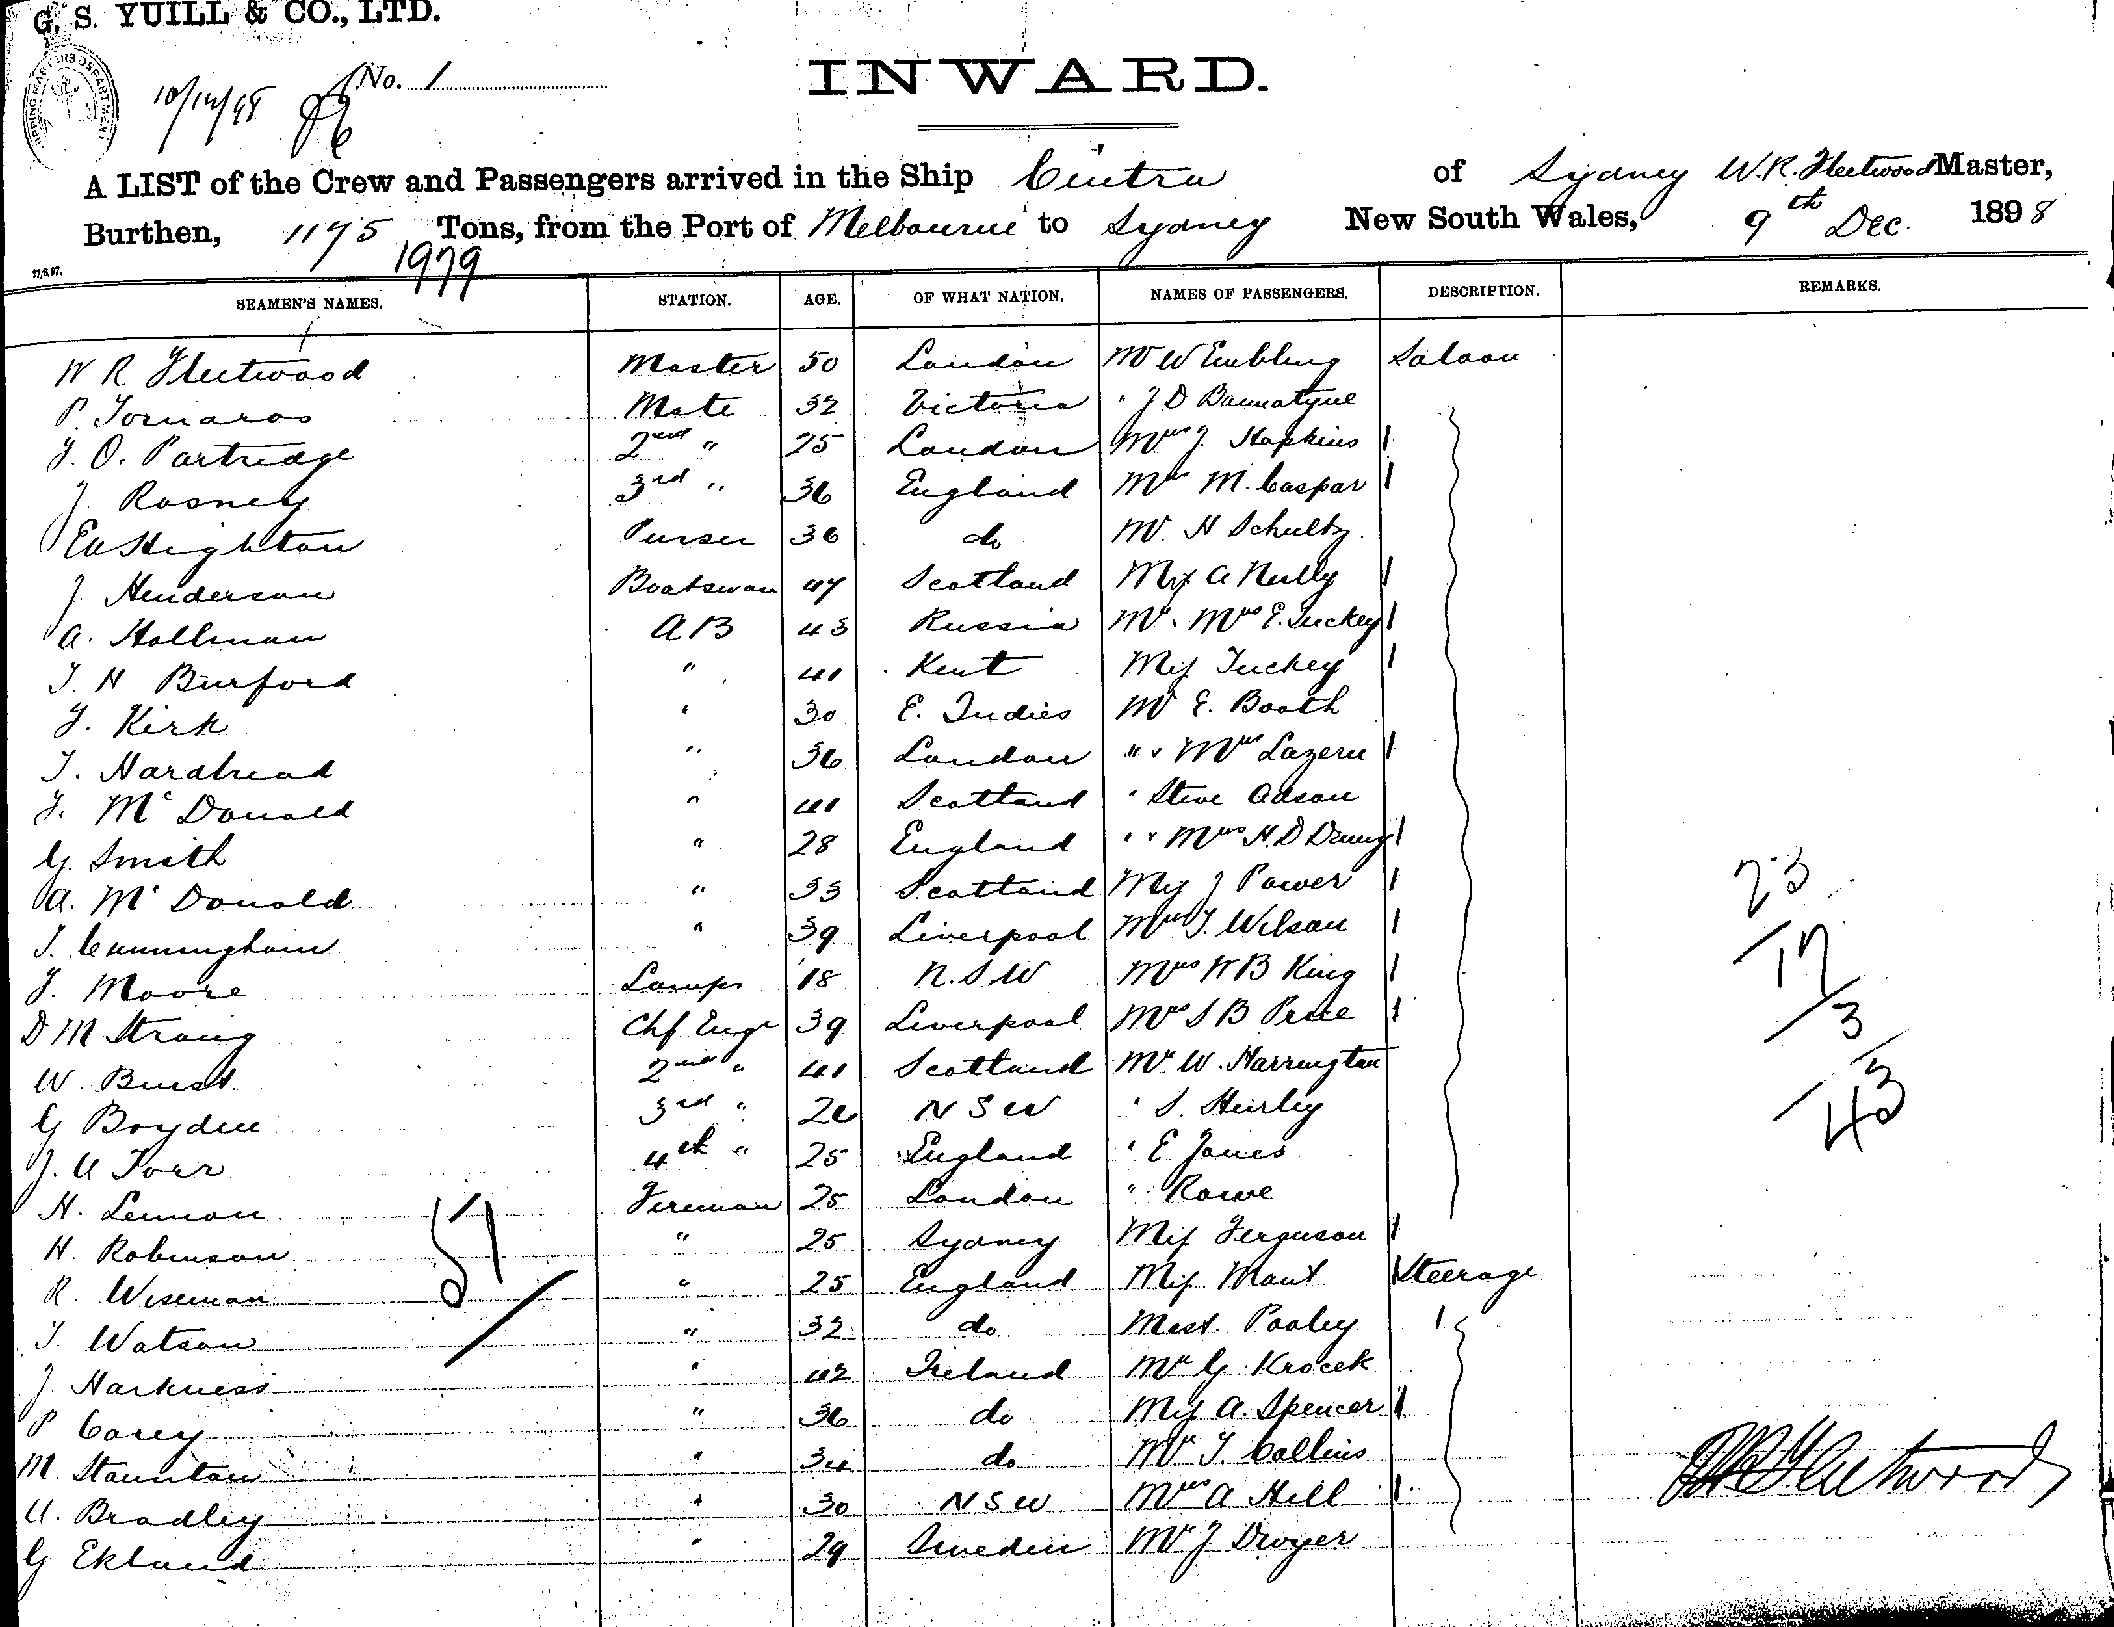 G. S. YUILL & CO., LTD.
10/12/98 No. 1
INWARD.
A LIST of the Crew and Passengers arrived in the Ship Cintra of Sydney W.R. Fleetwood Master,
Burthen, 1175 Tons, from the Port of Melbourne to Sydney New South Wales, 9th Dec. 1898
1979
SEAMEN'S NAMES. STATION. AGE. OF WHAT NATION. NAMES OF PASSENGERS. DESCRIPTION. REMARKS.
W R Fleetwood Master 50 London Mr W Embling Saloon
P. Tornaros Mate 32 Victoria " J D Bannatyne
J. O. Partridge 2nd " 25 London Mrs J. Hopkins
J. Rosney 3rd " 36 England Mrs M. Caspar
Ed Highton Purser 36 do Mr. H Schultz
J Henderson Boatswan 47 Scotland Miss A Nully
A. Hallman AB 43 Russia Mr. Mrs E. Tuckey
T. H Burford " 41 Kent Miss Tuckey
J. Kirk " 30 E. Indies Mr E. Booth
T. Hardhead " 36 London " " Mrs Lazern
J. McDonald " 41 Scotland " Steve Adson
G. Smith " 28 England " " Mrs H. D Denny
A. McDonald " 33 Scotland Miss J Power
T. Cunningham " 39 Liverpool Mrs T. Wilson
J. Moore Lamps 18 N.S.W Mrs W B King
D M Strong Chf Engr 39 Liverpool Mrs S B Price
W. Buist 2nd " 41 Scotland Mr W. Harrington
G Boyden 3rd " 26 N S W " S. Hurley
J. A Torr 4th " 25 England " E Jones
H. Lennon Fireman 25 London " Rowe
H. Robinson " 25 Sydney Miss Ferguson
R. Wiseman " 25 England Miss Mant Steerage
T Watson " 32 do Mast. Pooley
J Harkness " 42 Ireland Mr G Krocek
P Carey " 36 do Miss A. Spencer
M Staunton " 34 do Mr T. Collins
A. Bradley " 30 N S W Mrs A Hill
G Eklund " 29 Sweden Mr J Dwyer
51
23
17
3
43
W R Fleetwood